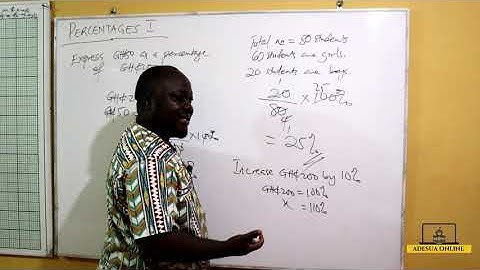 PERCENTAGES I
Express GH¢50 as a percentage
of GH¢
GH¢2
GH¢50
Total no = 80 students
60 students are girls.
20 students are boys.
20/80 × 100%
1
4
25
= 25%
Increase GH¢200 by 10%
GH¢200 = 100%
x = 110%
ADESUA ONLINE